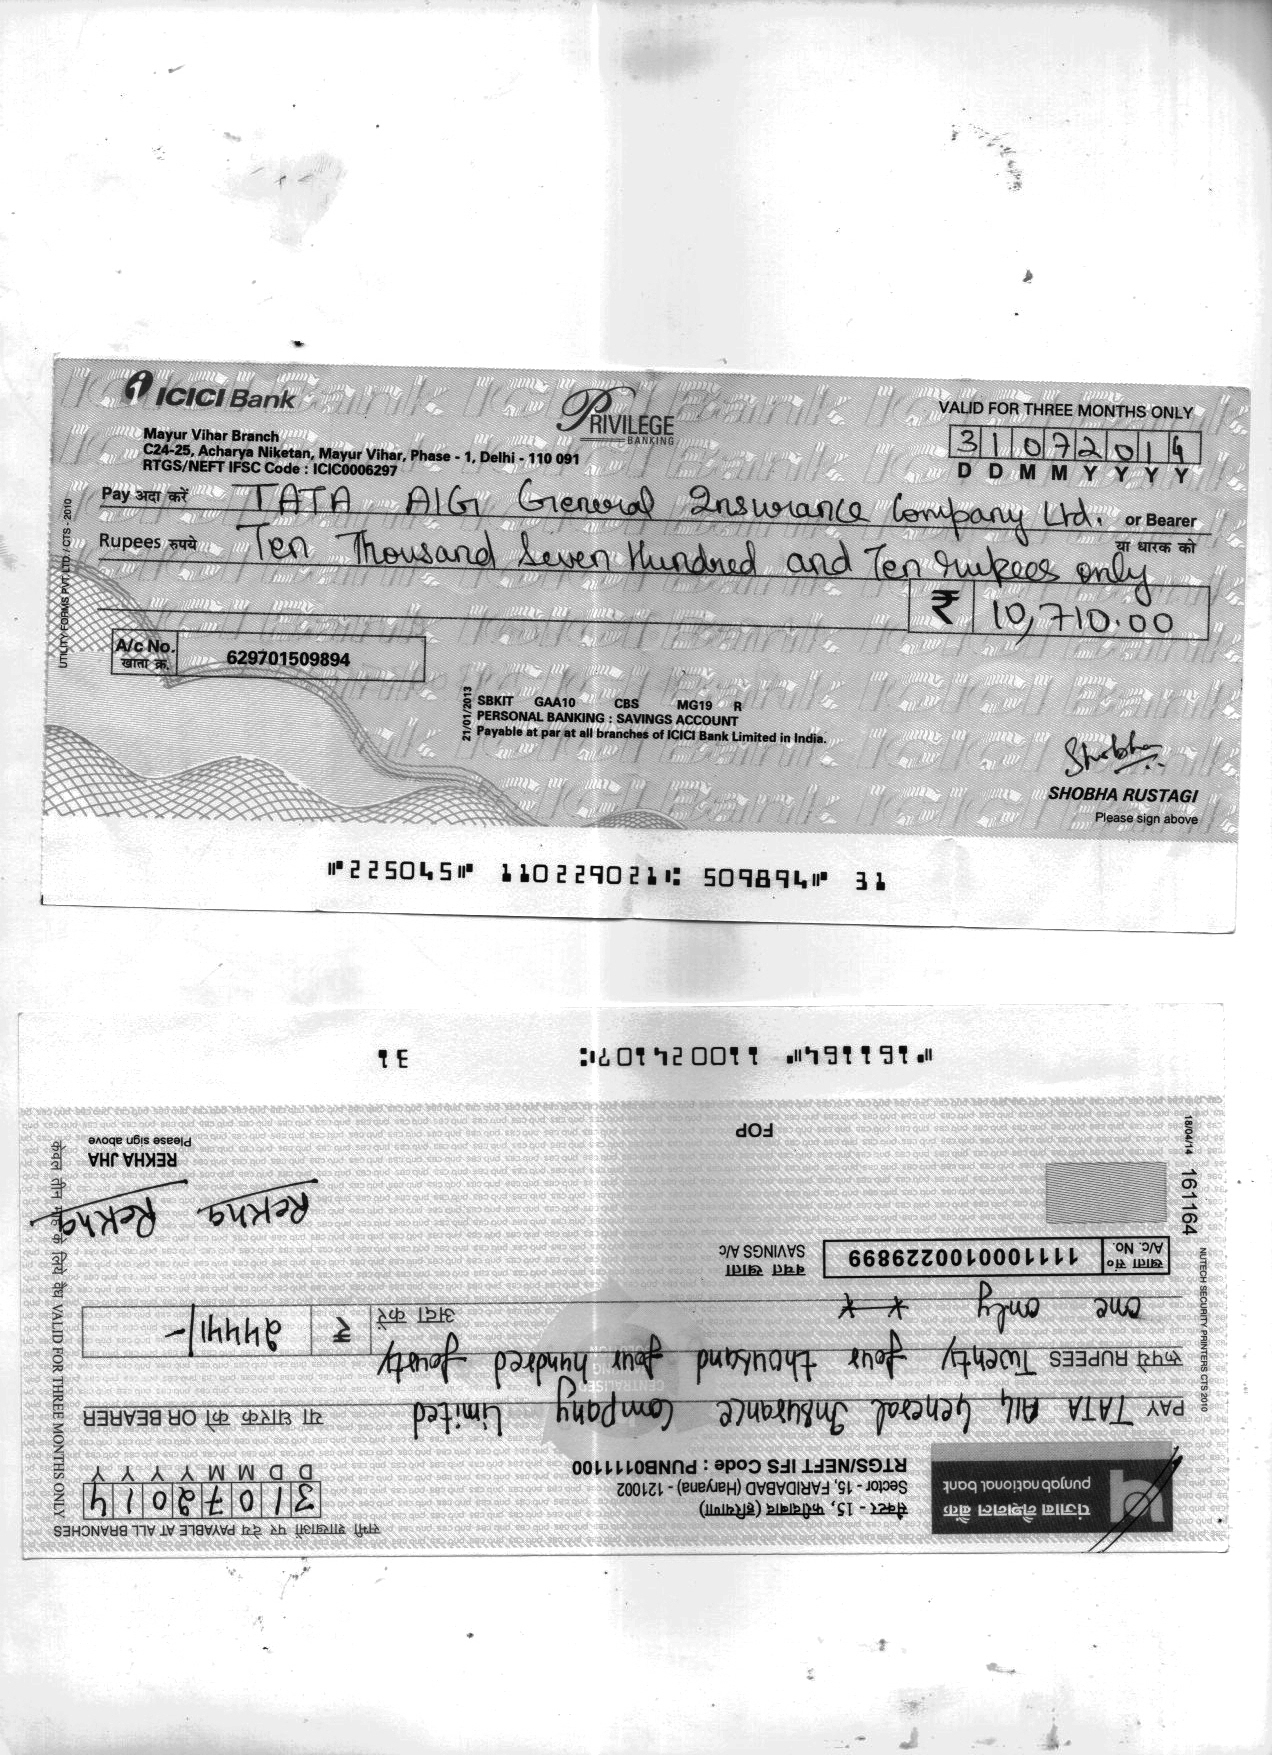 ICICI Bank
PRIVILEGE
BANKING
VALID FOR THREE MONTHS ONLY
Mayur Vihar Branch
C24-25, Acharya Niketan, Mayur Vihar, Phase - 1, Delhi - 110 091
RTGS/NEFT IFSC Code : ICIC0006297
31072014
D D M M Y Y Y Y
Pay अदा करें TATA AIG General Insurance Company Ltd. or Bearer
या धारक को
Rupees रुपये Ten Thousand Seven Hundred and Ten rupees only
₹ 10,710.00
A/c No.
खाता क्र.
629701509894
UTILITY FORMS PVT LTD. / CTS - 2010
21/01/2013
SBKIT GAA10 CBS MG19 R
PERSONAL BANKING : SAVINGS ACCOUNT
Payable at par at all branches of ICICI Bank Limited in India.
Shobha
SHOBHA RUSTAGI
Please sign above
⑈225045⑈ 110229021⑆ 509894⑈ 31
पंजाब नैशनल बैंक
punjab national bank
सैक्टर - 15, फरीदाबाद (हरियाणा)
Sector - 15, FARIDABAD (Haryana) - 121002
RTGS/NEFT IFS Code : PUNB0111100
सभी शाखाओं पर देय PAYABLE AT ALL BRANCHES
31072014
D D M M Y Y Y Y
PAY TATA AIG General Insurance Company Limited या धारक को OR BEARER
रूपये RUPEES Twenty four thousand four hundred fourty
one only **
अदा करें ₹ 24441/-
खाता सं०
A/c. No.
1111000100229899
बचत खाता
SAVINGS A/c
Rekha Rekha
REKHA JHA
Please sign above
FOP
18/04/14 161164
NUTECH SECURITY PRINTERS CTS 2010
केवल तीन माह के लिये वैध VALID FOR THREE MONTHS ONLY
⑈161164⑈ 110024107⑆ 31